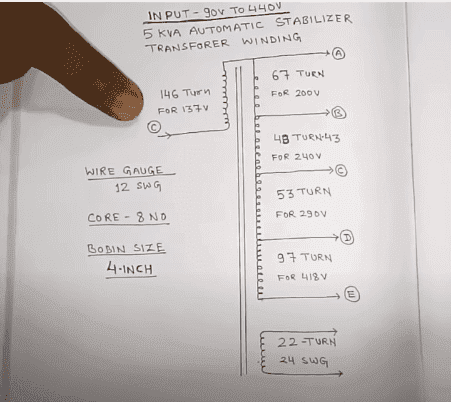 INPUT - 90V TO 440V
5 KVA AUTOMATIC STABILIZER
TRANSFORER WINDING
A
146 Turn
FOR 137V
C
67 TURN
FOR 200V
B
48 TURN-43
FOR 240V
C
WIRE GAUGE
12 SWG
53 TURN
FOR 290V
CORE - 8 NO
D
BOBIN SIZE
4-INCH
97 TURN
FOR 418V
E
22-TURN
24 SWG